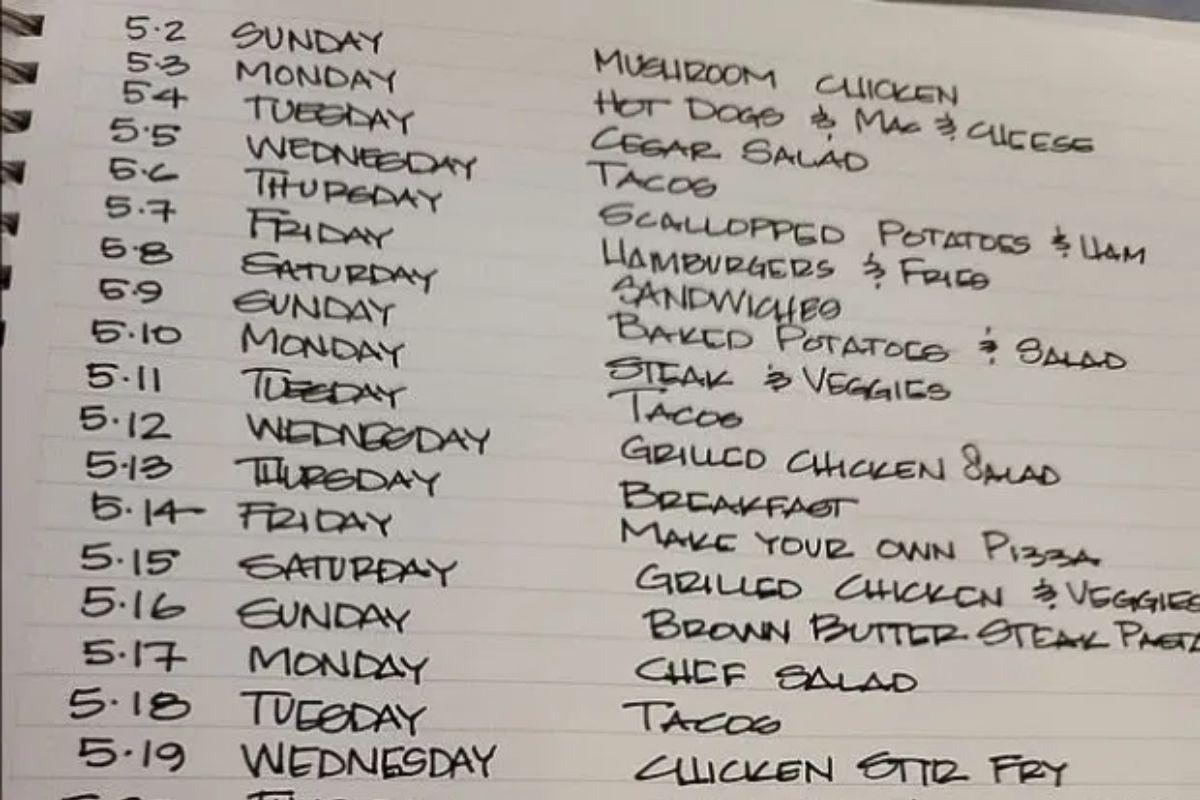 5.2 SUNDAY MUSHROOM CHICKEN
5.3 MONDAY HOT DOGS & MAC & CHEESE
5.4 TUESDAY CESAR SALAD
5.5 WEDNESDAY TACOS
5.6 THURSDAY SCALLOPPED POTATOES & HAM
5.7 FRIDAY HAMBURGERS & FRIES
5.8 SATURDAY SANDWICHES
5.9 SUNDAY BAKED POTATOES & SALAD
5.10 MONDAY STEAK & VEGGIES
5.11 TUESDAY TACOS
5.12 WEDNESDAY GRILLED CHICKEN SALAD
5.13 THURSDAY BREAKFAST
5.14 FRIDAY MAKE YOUR OWN PIZZA
5.15 SATURDAY GRILLED CHICKEN & VEGGIES
5.16 SUNDAY BROWN BUTTER STEAK PASTA
5.17 MONDAY CHEF SALAD
5.18 TUESDAY TACOS
5.19 WEDNESDAY CHICKEN STIR FRY